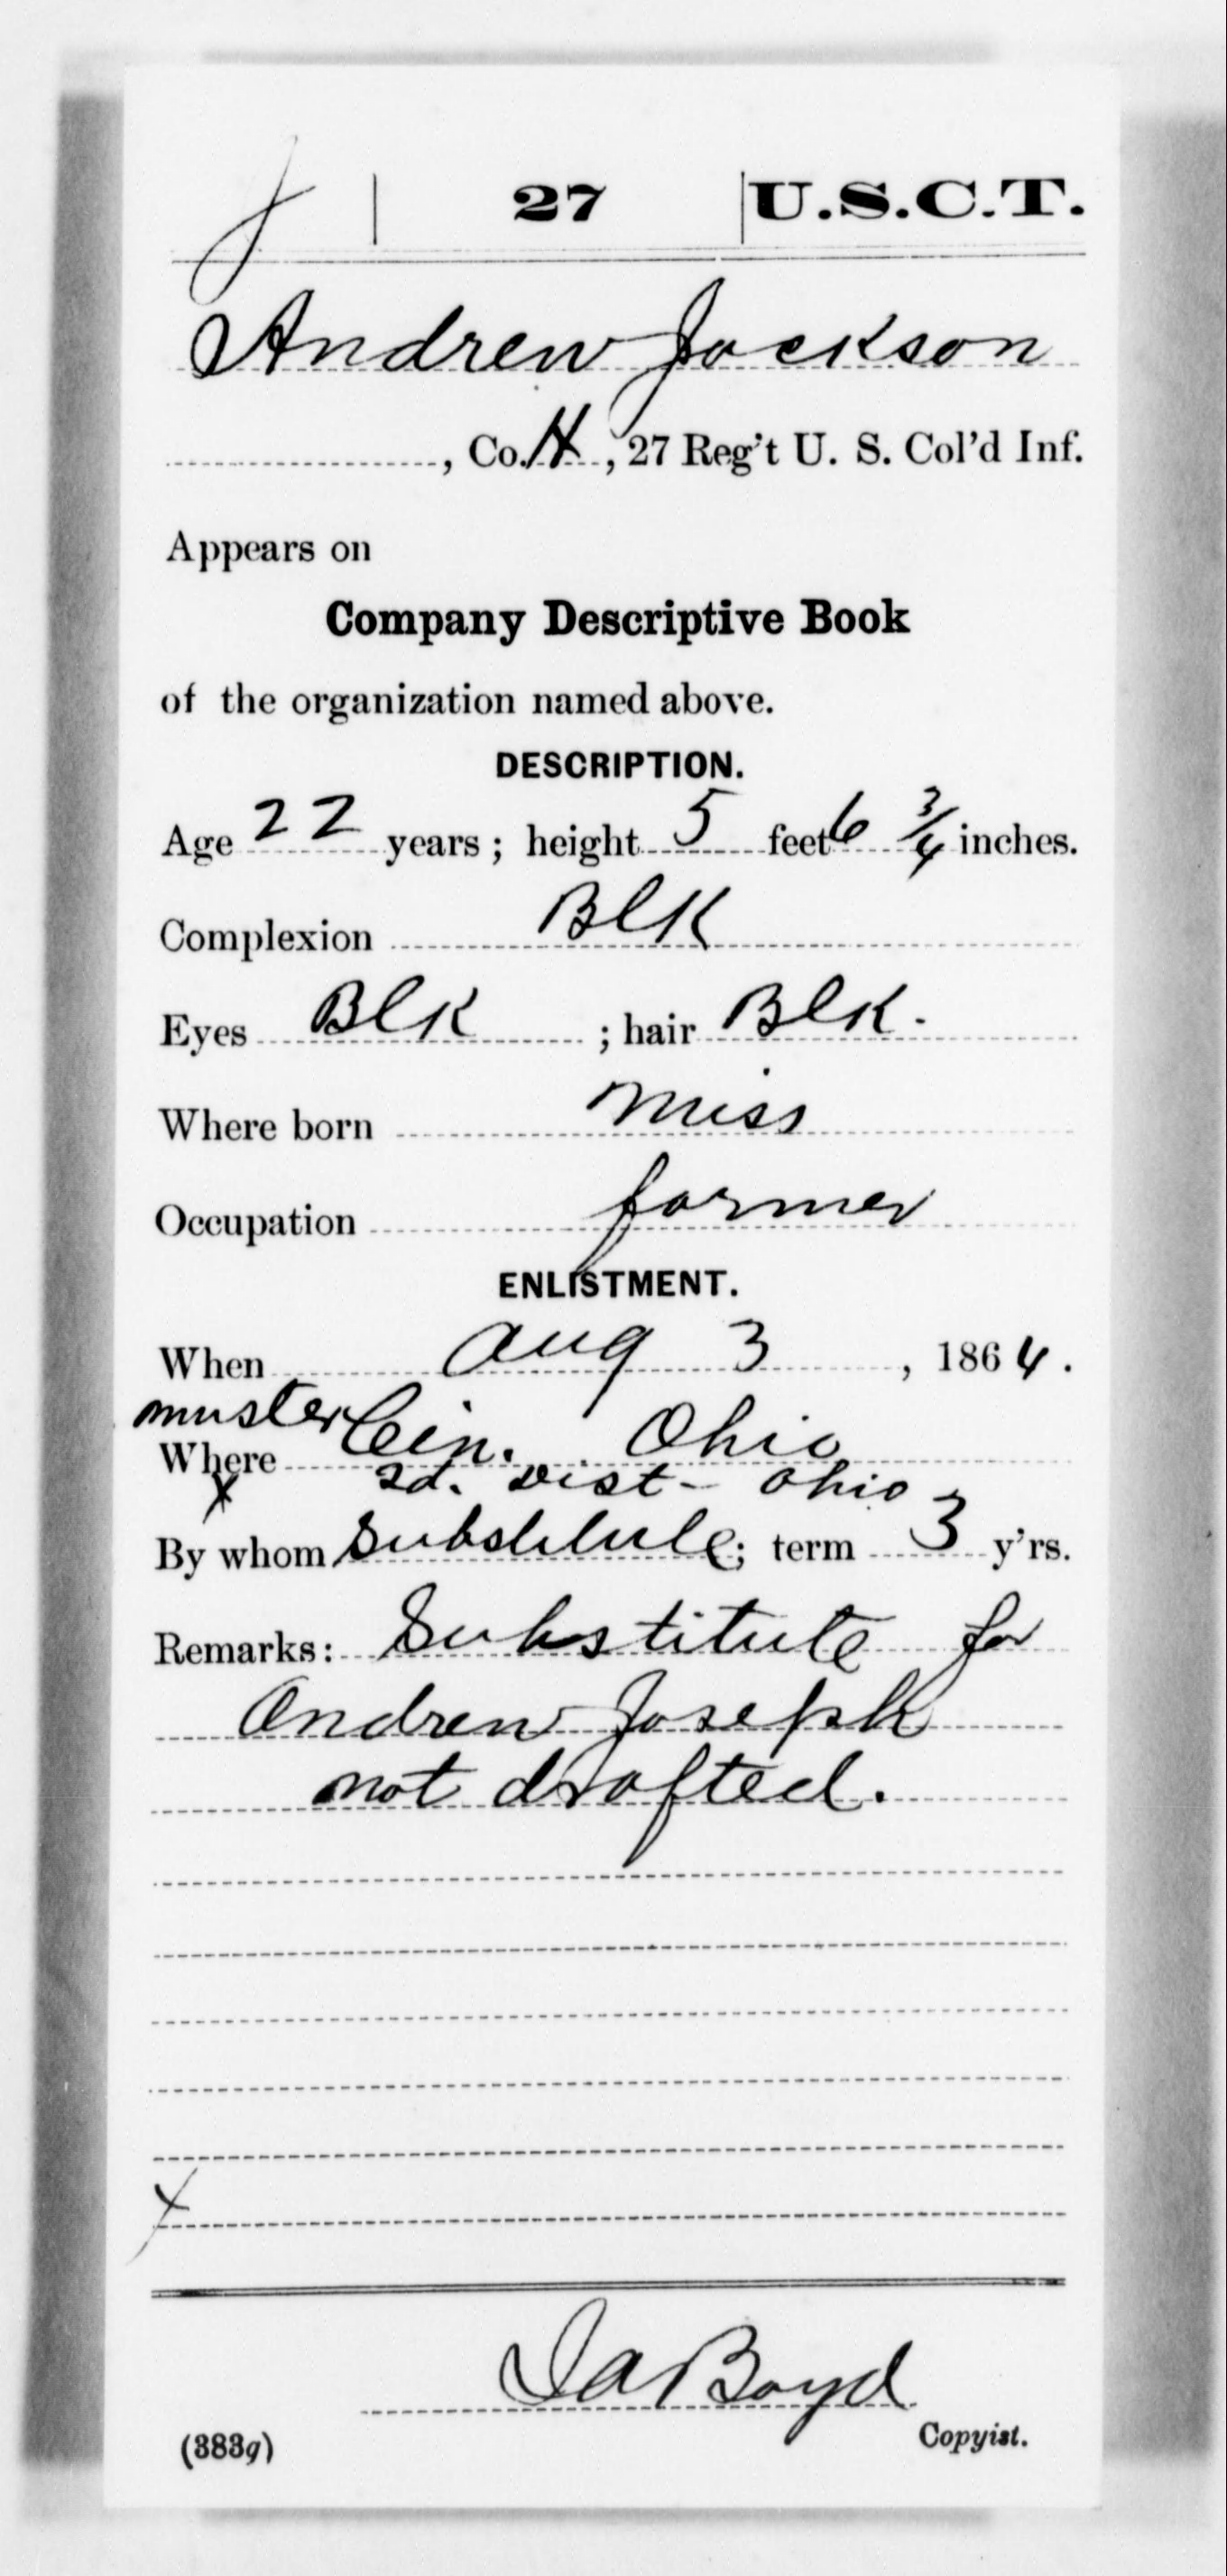 J 27 U.S.C.T.
Andrew Jackson
, Co. H, 27 Reg't U. S. Col'd Inf.
Appears on
Company Descriptive Book
of the organization named above.
DESCRIPTION.
Age 22 years; height 5 feet 6 3/4 inches.
Complexion Blk
Eyes Blk ; hair Blk.
Where born Miss
Occupation farmer
ENLISTMENT.
When Aug 3, 1864.
muster
Where Cin. Ohio
x 2d. Dist - Ohio
By whom Substitute; term 3 y'rs.
Remarks: Substitute for
Andrew Joseph
not drafted.
x
Boyd
(383g) Copyist.